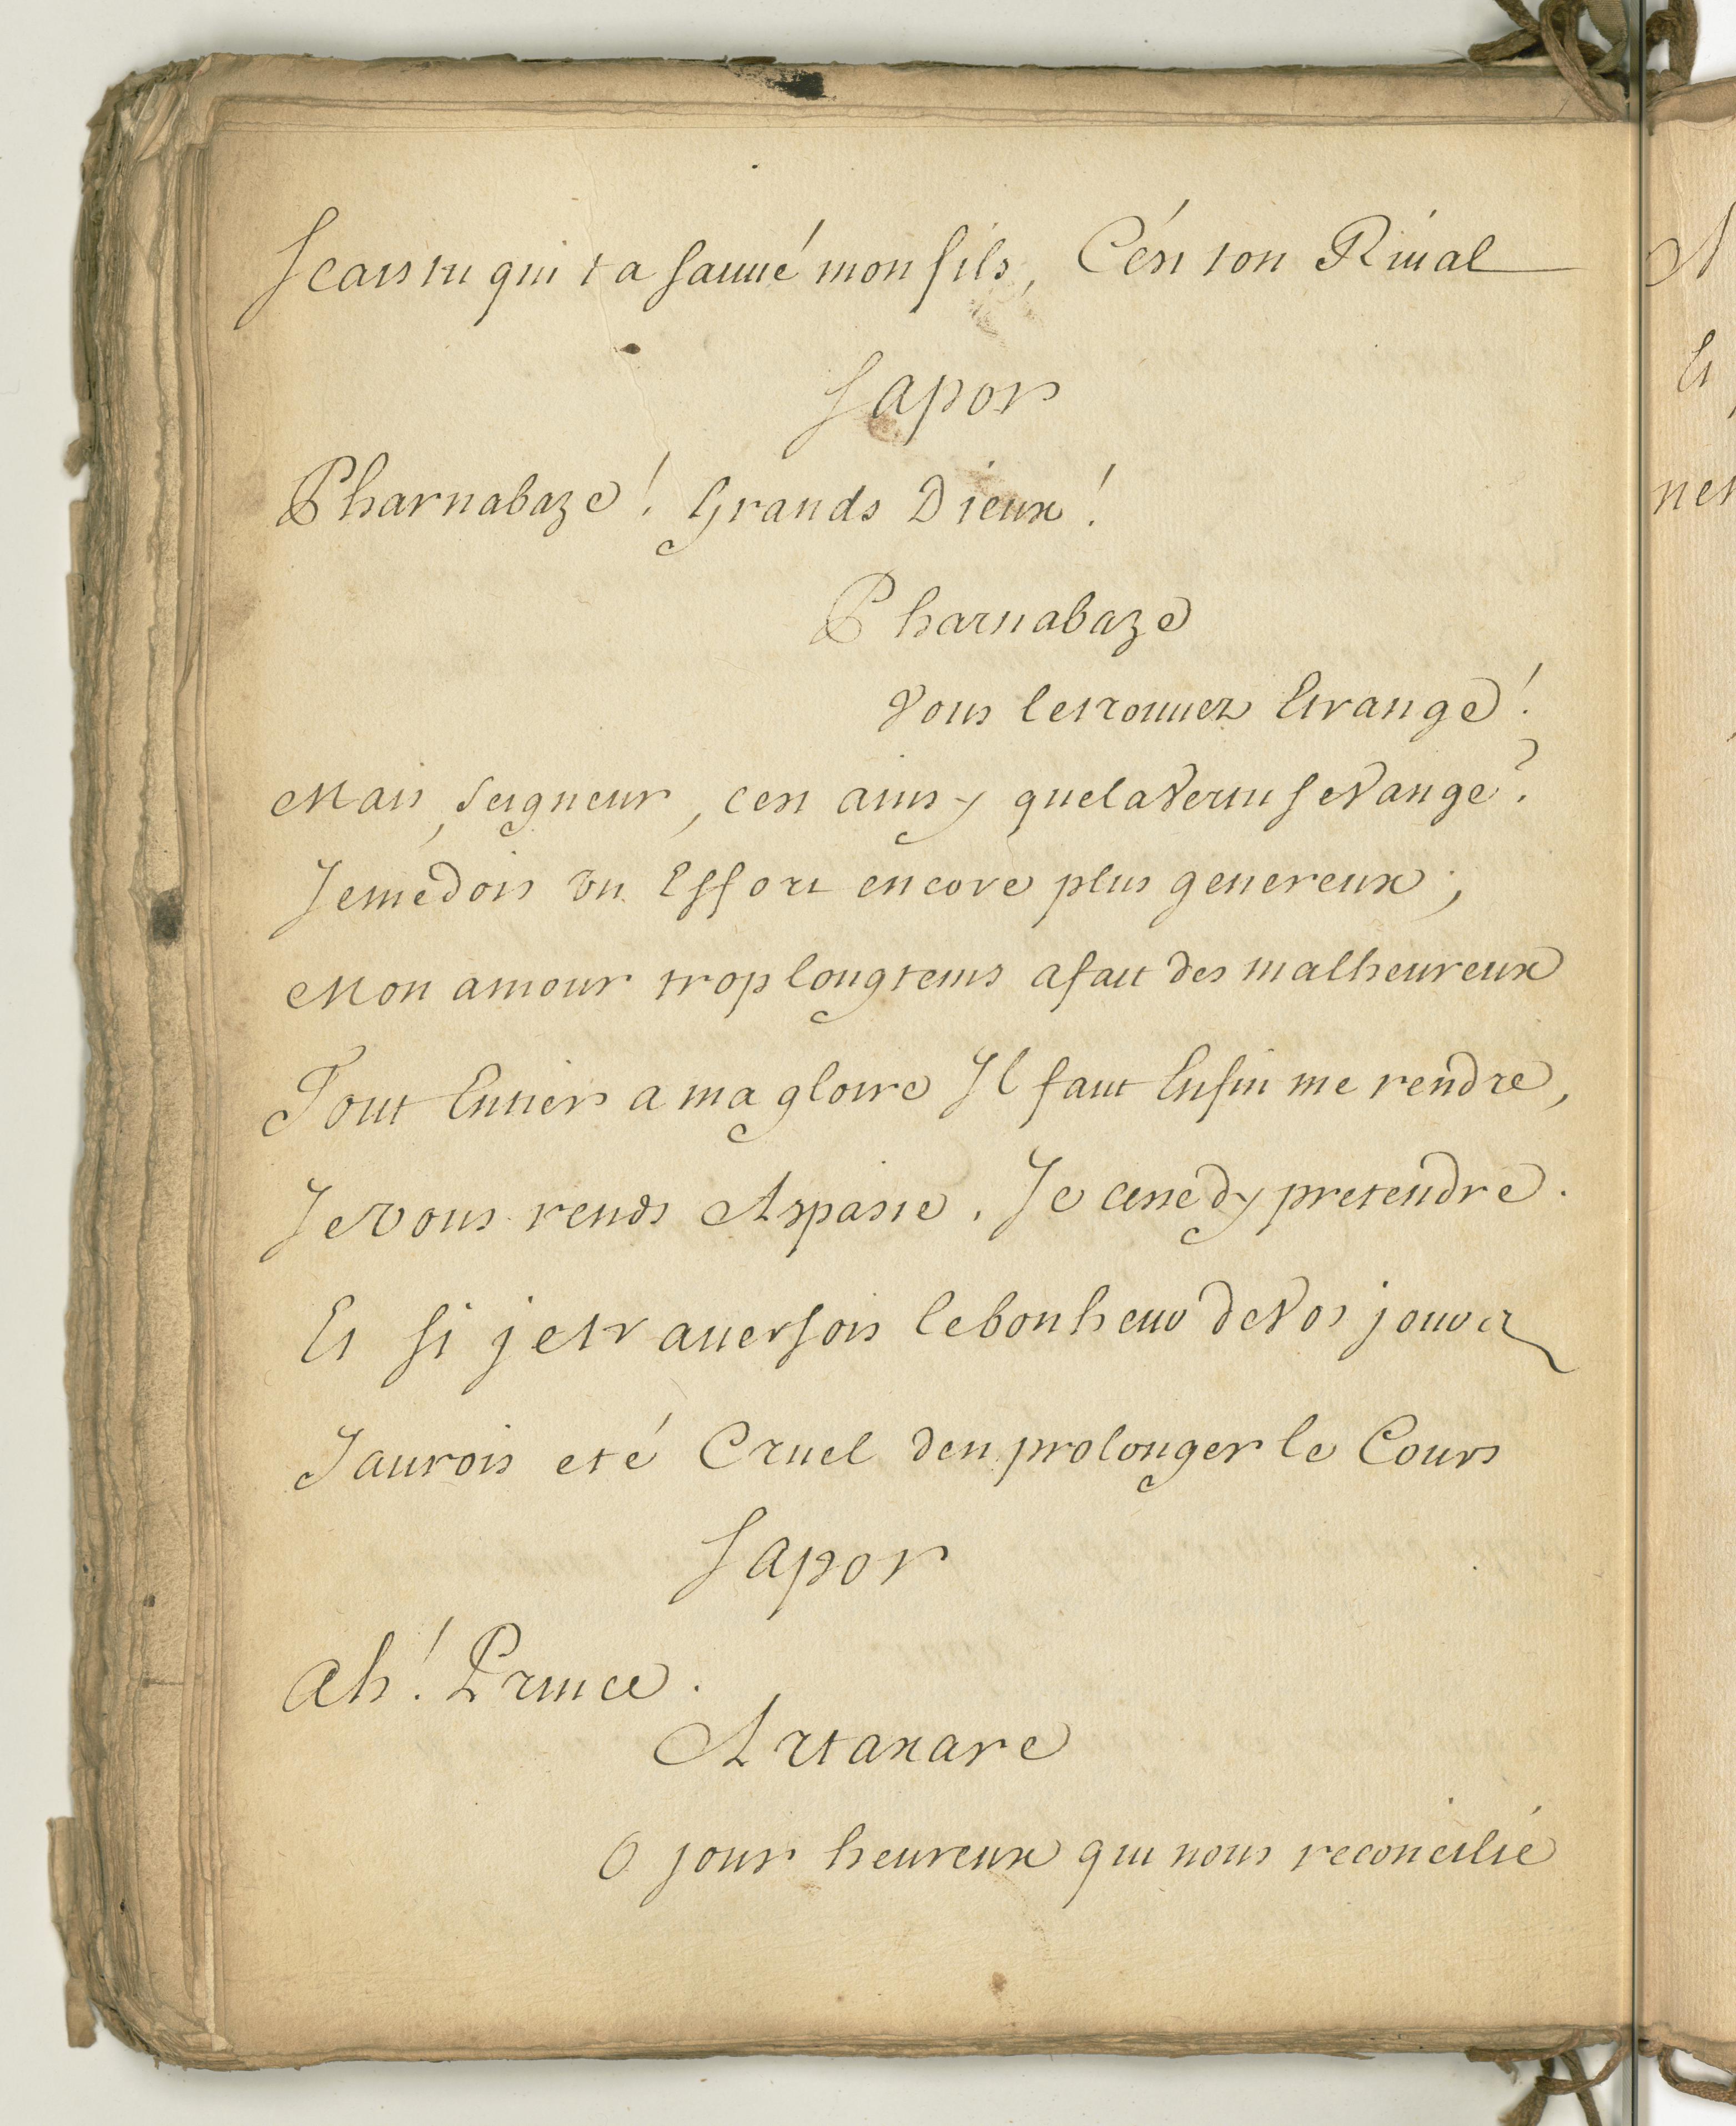 Scais tu qui t'a sauué mon fils, C'ést ton Riual
Sapor
Pharnabaze! Grands Dieux!
Pharnabaze
Vous le trouuez Etrange!
Mais, Seigneur, cest ainsy que la Vertu se Vange?
Je me dois un Effort encore plus genereux;
Mon amour trop longtems a fait des malheureux
Tout Entier a ma gloire Il faut Enfin me rendre,
Je vous rends Aspasie. Je cesse dy pretendre.
Et si je trauersois le bonheur de Vos jours
Jaurois eté Cruel den prolonger le Cours
Sapor
Ah! Prince.
Artaxare
O jour heureux qui nous reconcilie